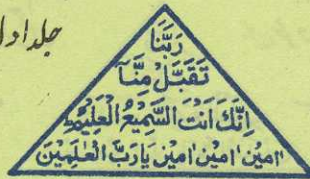 جلد اول
رَبَّنَا
تَقَبَّلْ مِنَّا
اِنَّكَ اَنْتَ السَّمِيْعُ الْعَلِيْمُ
اٰمِيْن اٰمِيْن اٰمِيْن يَارَبَّ الْعٰلَمِيْنَ